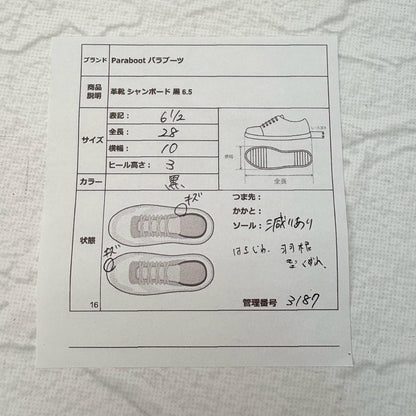 ブランド Paraboot パラブーツ
商品説明 革靴 シャンボード 黒 6.5
サイズ
表記： 6 1/2
全長： 28
横幅： 10
ヒール高さ： 3
横幅
全長
カラー 黒
状態
キズ
キズ
つま先：
かかと：
ソール： 減りあり
はきじわ、羽根
型くずれ。
16
管理番号 3187